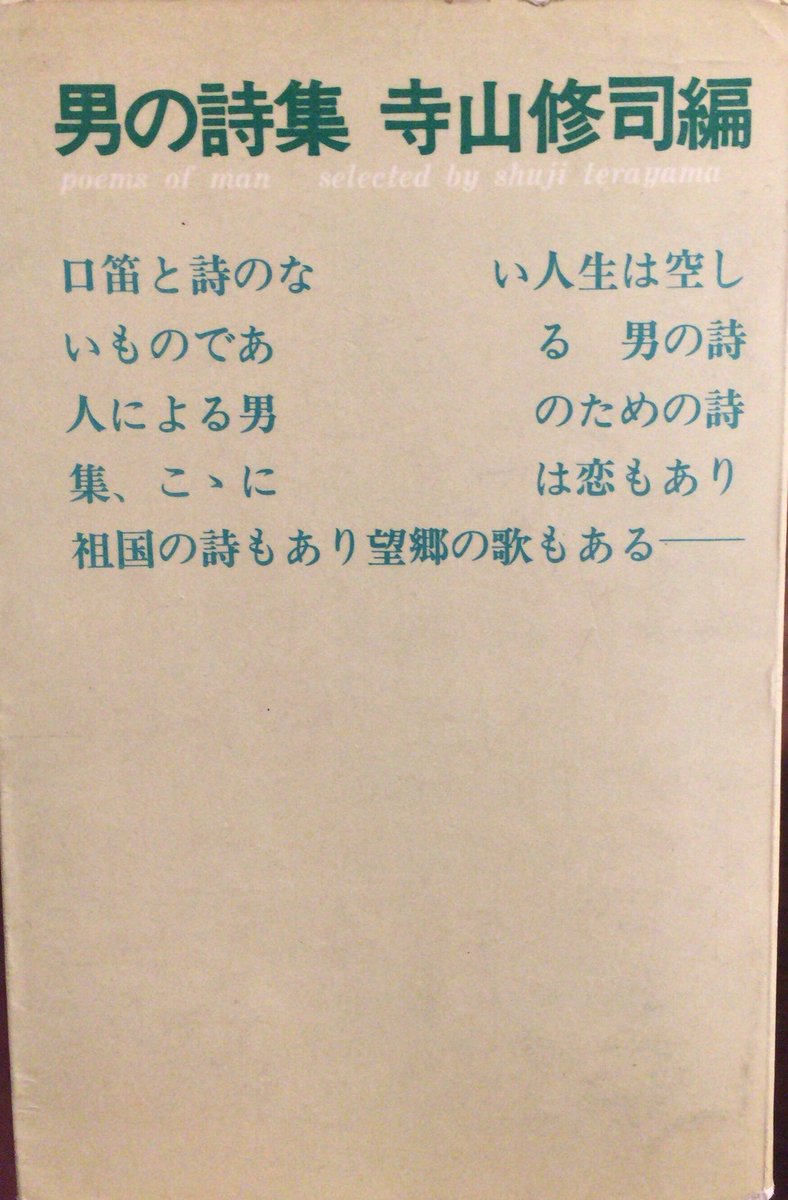 男の詩集 寺山修司編
poems of man selected by shuji terayama
口笛と詩のな い人生は空し
いものであ る 男の詩
人による男 のための詩
集、こゝに は恋もあり
祖国の詩もあり望郷の歌もある——